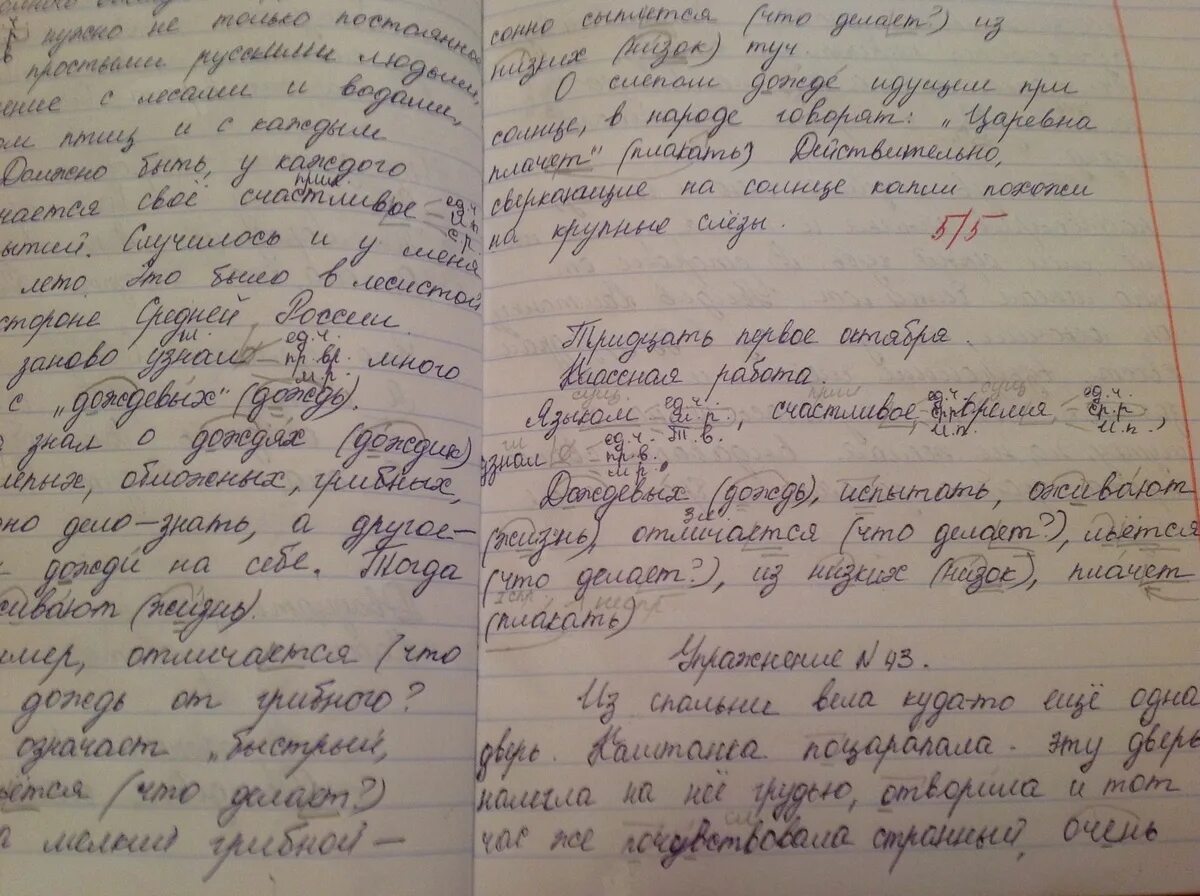 нужно не только постоянное
простыми русскими людьми,
ение с лесами и водами,
ом птиц и с каждым
Должно быть, у каждого
прил.
чается своё счастливое – ед.ч. и.п. ср.р.
ытий. Случилось и у меня
лето. Это было в лесистой
стороне Средней России.
гл
заново узнал – ед.ч. пр.вр. м.р. много
с „дождевых" (дождь).
знал о дождях (дождик)
епых, обложных, грибных,
но дело – знать, а другое –
дожди на себе. Тогда
ивают (жизнь).
мер, отличается (что
дождь от грибного?
означает „быстрый,
ьётся (что делает?)
а мелкий грибной –
сонно сыплется (что делает?) из
низких (низок) туч.
О слепом дожде идущем при
солнце, в народе говорят: „Царевна
плачет" (плакать) Действительно,
сверкающие на солнце капли похожи
на крупные слёзы.
5/5
Тридцать первое октября.
Классная работа.
сущ. прил сущ
Языком – ед.ч. м.р. Т.в., счастливое, – ед.ч. ср.р и.п. время, – ед.ч. ср.р и.п.,
гл
узнал – ед.ч. пр.в. м.р.
Дождевых (дождь), испытать, оживают
(жизнь), отличается (что делает?), льётся
(что делает?), из низких (низок), плачет
I спр.
(плакать)
Упражнение N 43.
Из спальни вела куда-то ещё одна
дверь. Каштанка поцарапала эту дверь
налегла на неё грудью, отворила и тот
час же почувствовала странный, очень